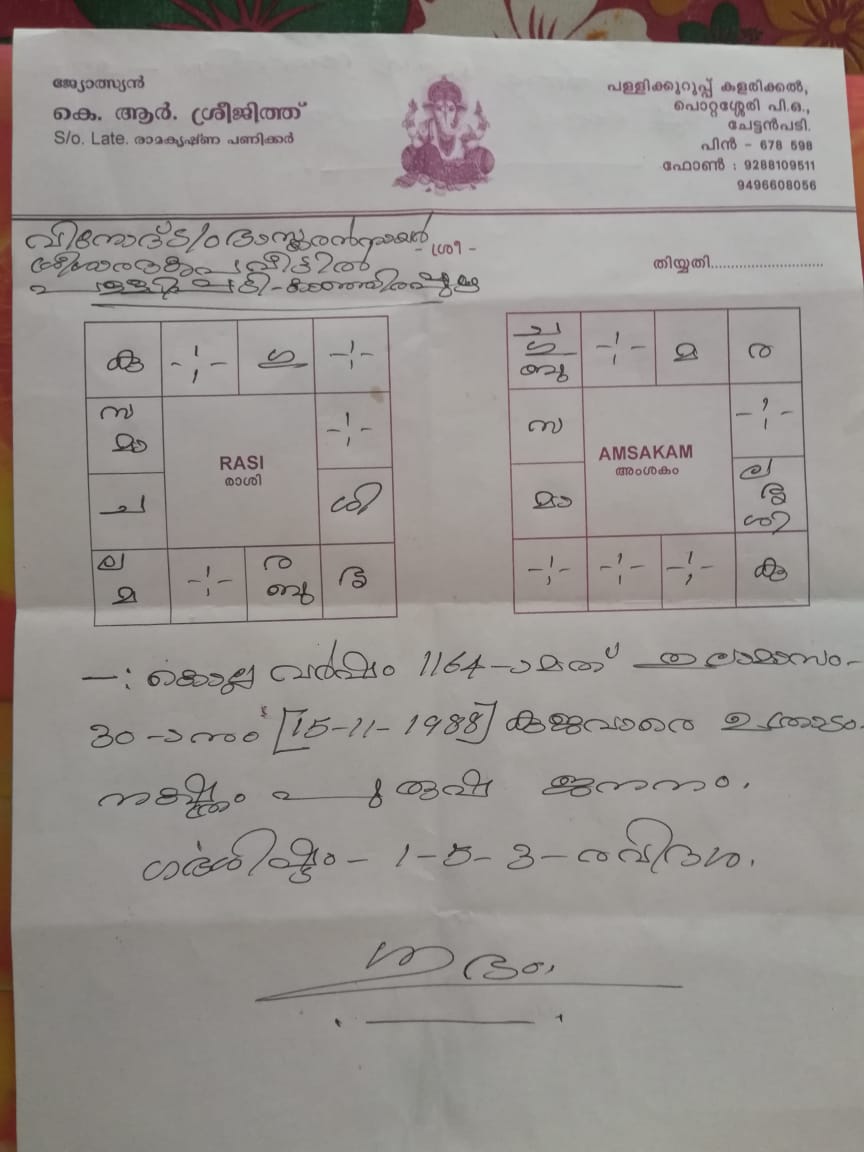 ജ്യോത്സ്യൻ
കെ. ആർ. ശ്രീജിത്ത്
S/o. Late. രാമകൃഷ്ണ പണിക്കർ
പള്ളിക്കുറുപ്പ് കളരിക്കൽ,
പൊറ്റശ്ശേരി പി.ഒ.,
ചേട്ടൻപടി.
പിൻ - 678 598
ഫോൺ : 9288109511
9496608056
വിനോദ് S/o ഭാസ്കരൻനായർ
- ശ്രീ -
വീട്ടിൽ
തിയ്യതി...........................
കു -¦- ഗു -¦-
സ
മാ
-¦-
RASI
രാശി
ച ശി
ല
മ
-¦-
ര
ബു
ഭൃ
ച
ഗു
ബു
-¦- മ ര
സ -¦-
AMSAKAM
അംശകം
മാ
ല
ഭൃ
ശി
-¦- -¦- -¦- കു
—: കൊല്ല വർഷം 1164-ാമത് തുലാമാസം-
30-ാനം [15-11-1988] കുജവാരെ ഉത്രാടം
നക്ഷത്രം പുരുഷ ജനനം.
ഗർഭശിഷ്ടം - 1-5-3- രവിദശ.
ശുഭം.